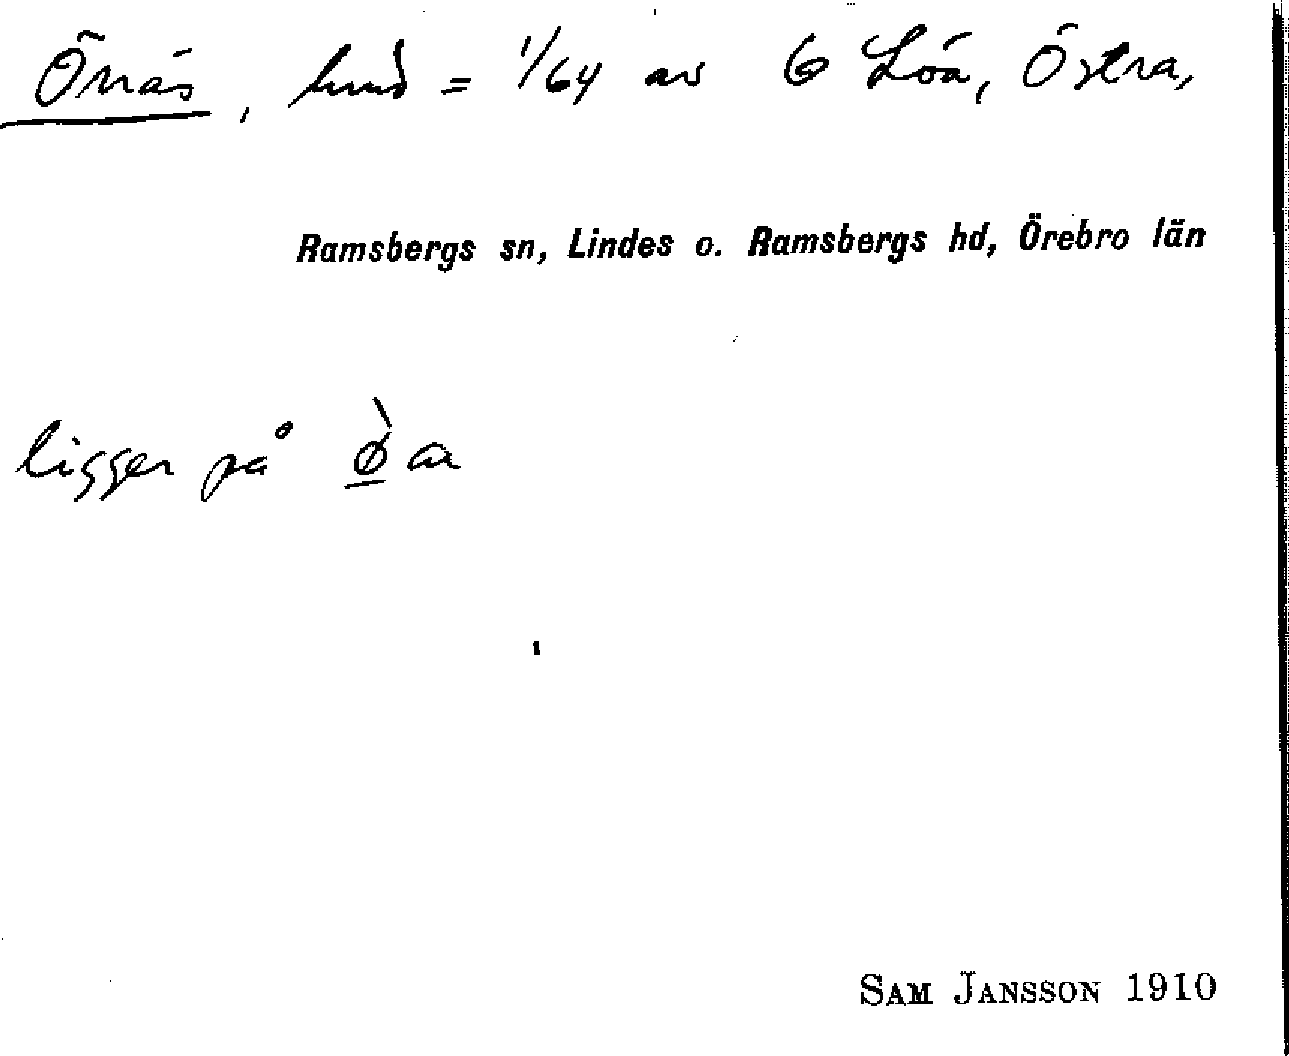 Önäs, hmd = 1/64 av 6 Löa, Östra,
Ramsbergs sn, Lindes o. Ramsbergs hd, Örebro län
ligger på ø̠̀ a
SAM JANSSON 1910